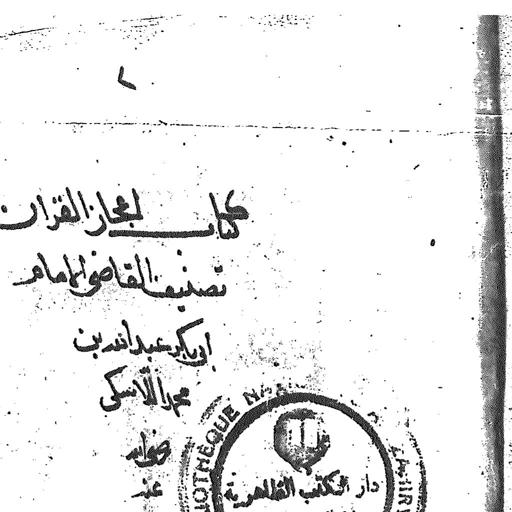 كتاب اعجاز القران
تصنيف القاضي الامام
ابي بكر عبد الله بن
محمد
رضي الله
عنه
BIOTHÈQUE NA
ZAHIR
دار الكتب الظاهرية